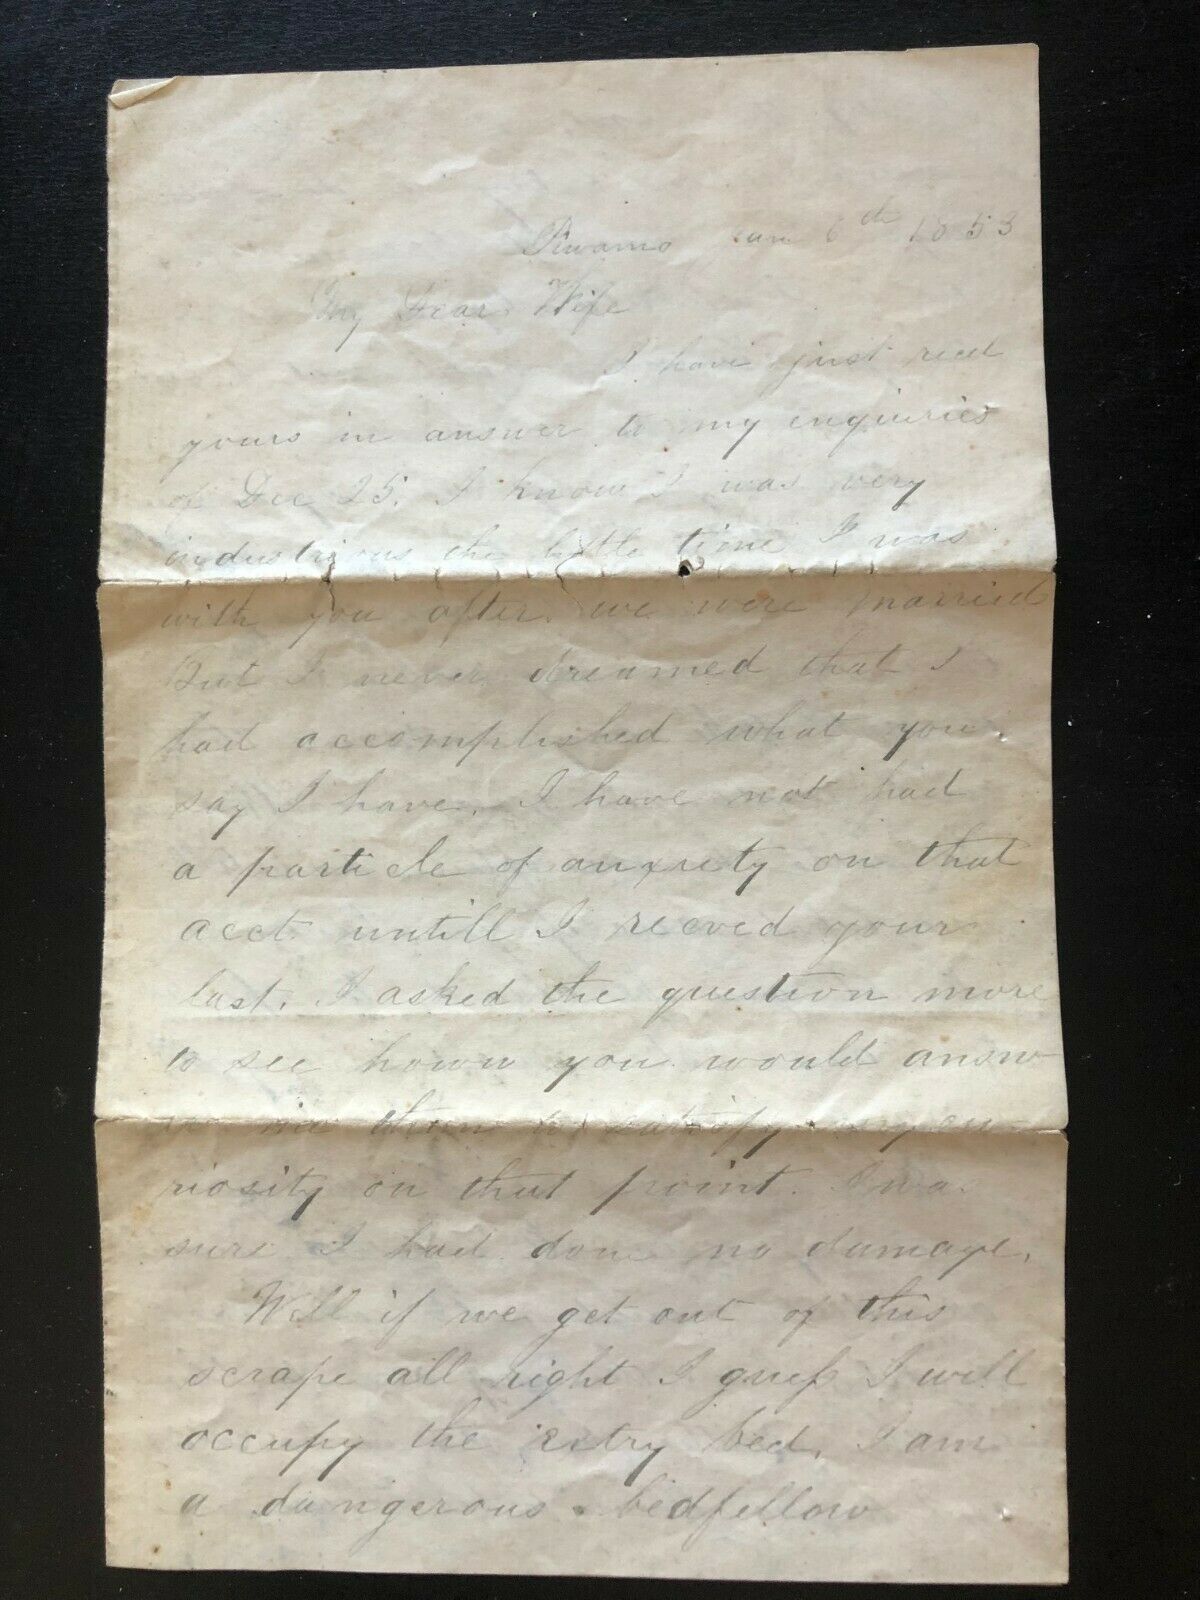 Pewamo Jan 6th 1853
My Dear Wife
I have just recd
yours in answer to my enquiries
of Dec 25. I know I was very
industrious the little time I was
with you after we were married
But I never dreamed that I
had accomplished what you
say I have. I have not had
a particle of anxiety on that
acct untill I recved your
last. I asked the question more
to see hown you would answ
er me than to satisfy my cu-
riosity on that point. I was
sure I had done no damage.
Well if we get out of this
scrape all right I guess I will
occupy the extry bed. I am
a dangerous bedfellow